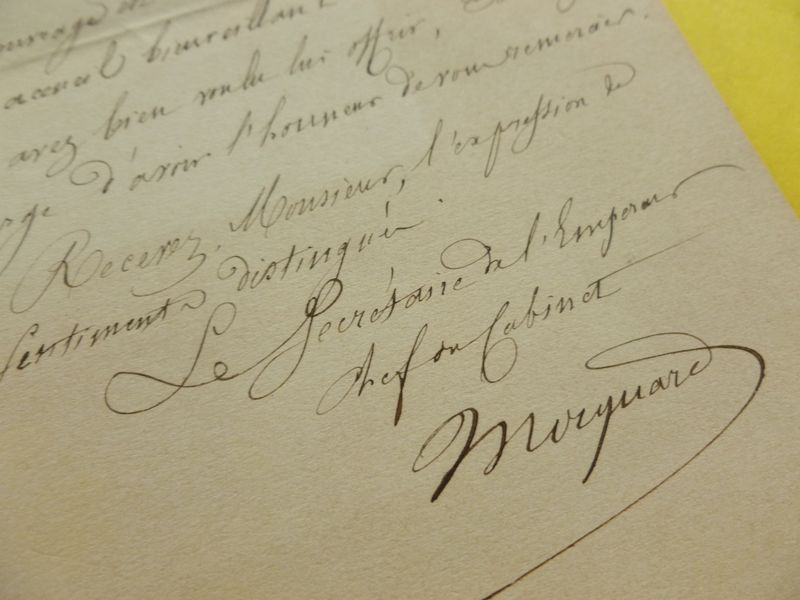 ouvrage et
accueil bienveillant
avez bien voulu lui offrir,
d'avoir l'honneur de vous remercier.
Recevez, Monsieur, l'expression de
sentiments distingués.
Le Secrétaire de l'Empereur
chef du Cabinet
Mocquard